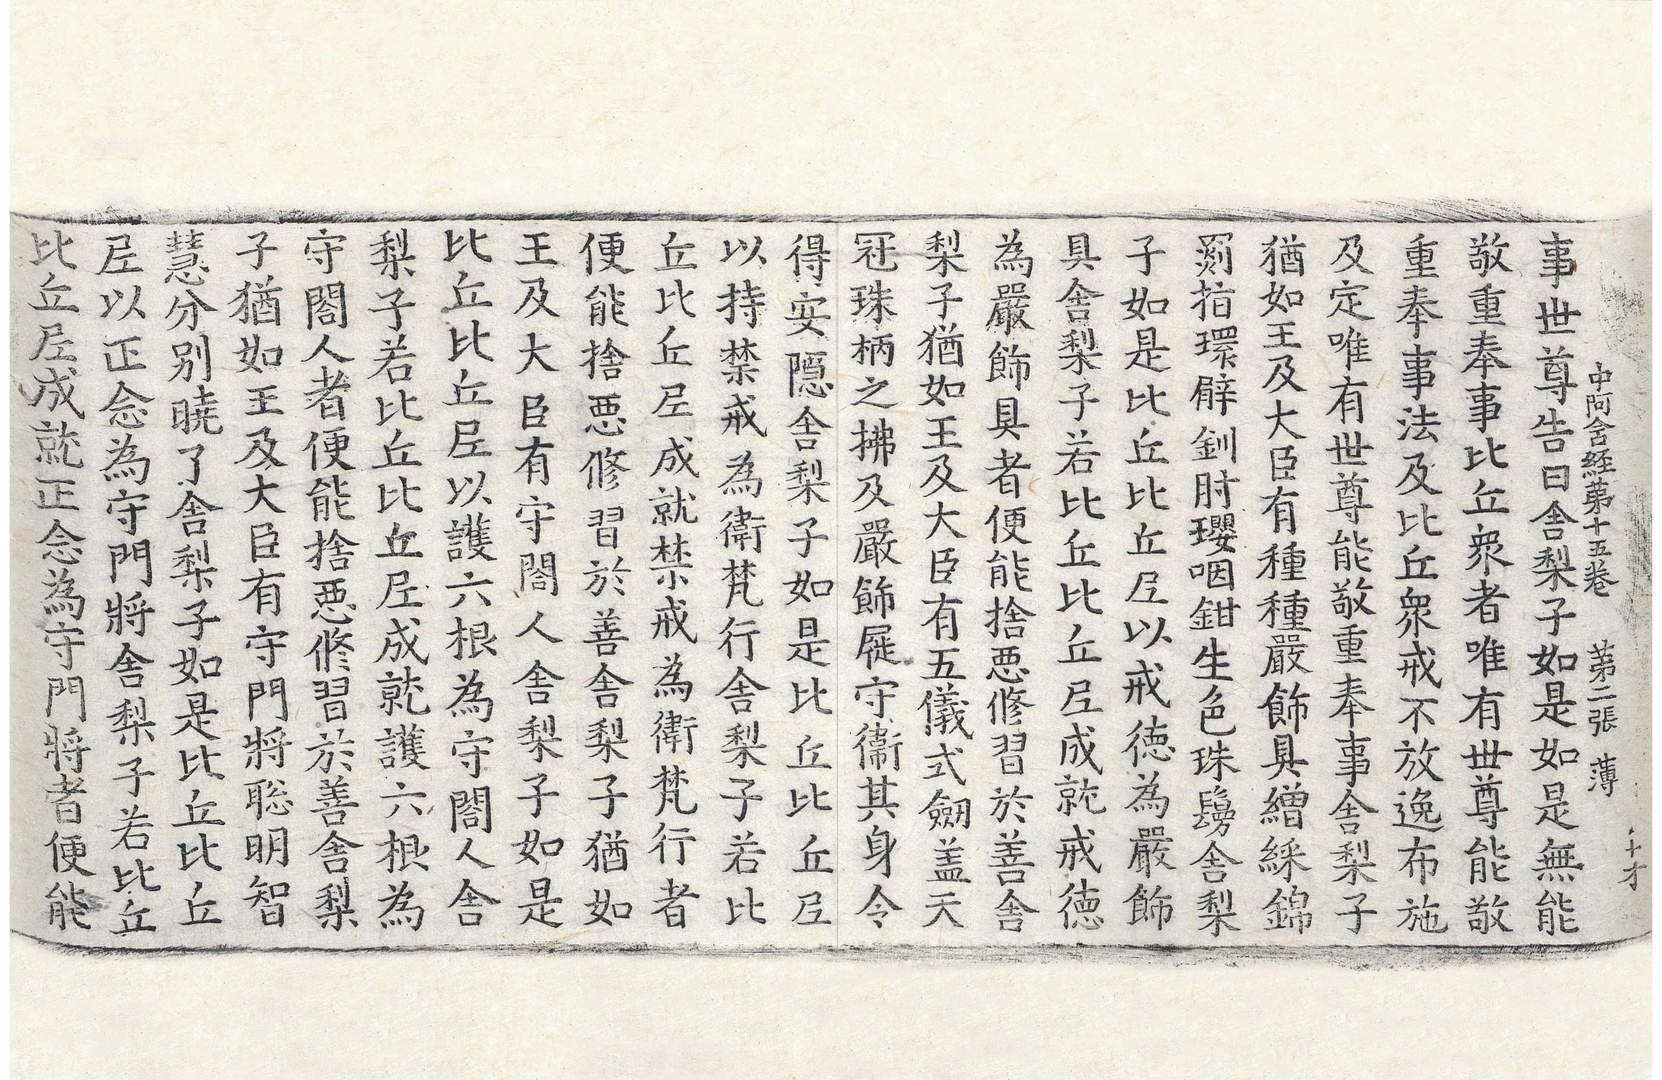 中阿含経第十五巻　第二張　薄
事世尊告曰舎梨子如是如是無能
敬重奉事比丘衆者唯有世尊能敬
重奉事法及比丘衆戒不放逸布施
及定唯有世尊能敬重奉事舎梨子
猶如王及大臣有種種嚴飾具繒綵錦
罽指環臂釧肘瓔咽鉗生色珠鬘舎梨
子如是比丘比丘尼以戒徳為嚴飾
具舎梨子若比丘比丘尼成就戒徳
為嚴飾具者便能捨惡修習於善舎
梨子猶如王及大臣有五儀式劒盖天
冠珠柄之拂及嚴飾屣守衞其身令
得安隱舎梨子如是比丘比丘尼
以持禁戒為衛梵行舎梨子若比
丘比丘尼成就禁戒為衛梵行者
便能捨惡修習於善舎梨子猶如
王及大臣有守閤人舎梨子如是
比丘比丘尼以護六根為守閤人舎
梨子若比丘比丘尼成就護六根為
守閤人者便能捨惡修習於善舎梨
子猶如王及大臣有守門將聡明智
慧分別曉了舎梨子如是比丘比丘
尼以正念為守門將舎梨子若比丘
比丘尼成就正念為守門將者便能